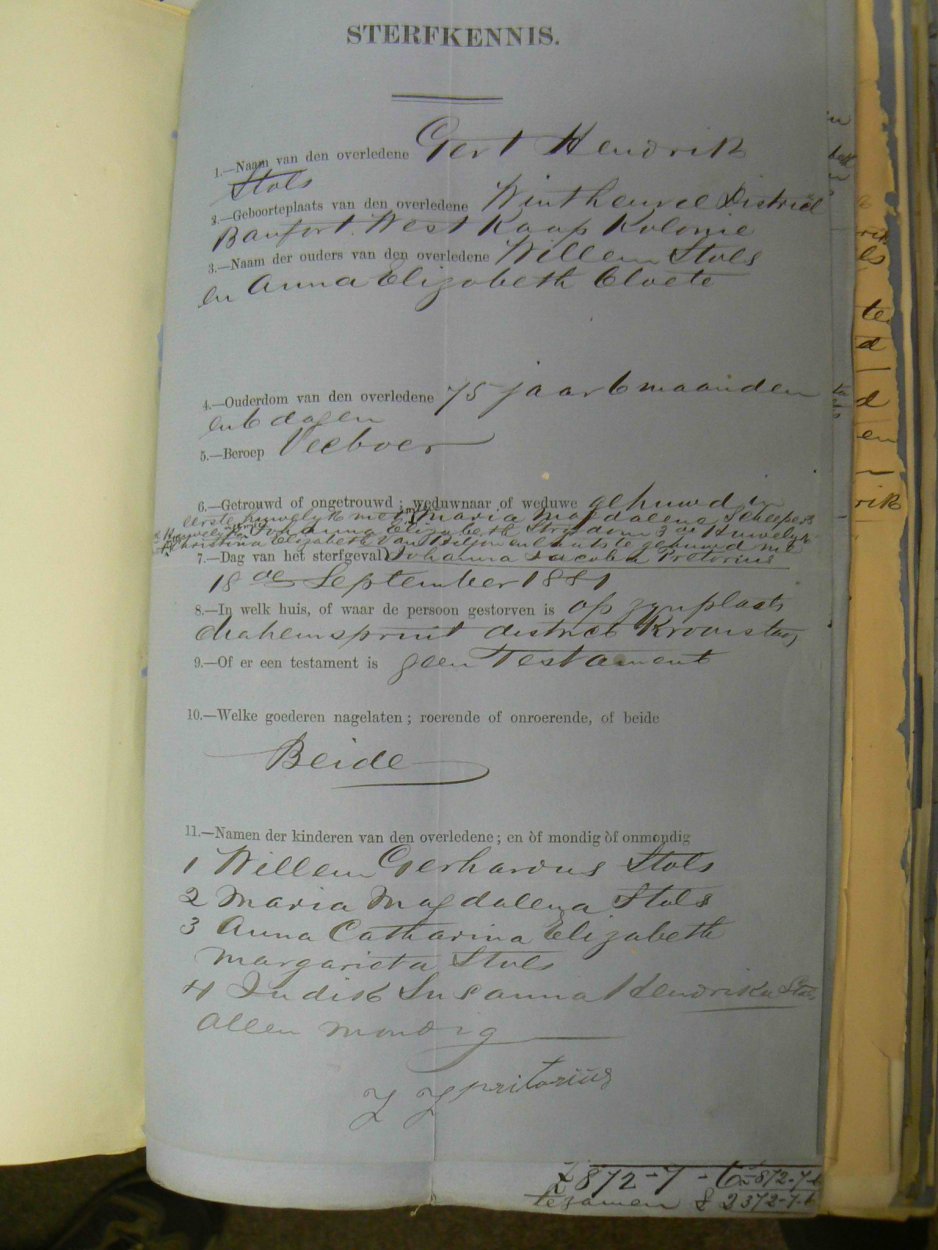 STERFKENNIS.
1.—Naam van den overledene Gert Hendrik
Stols
2.—Geboorteplaats van den overledene District
Baufort West Kaap Kolonie
3.—Naam der ouders van den overledene Willem Stols
en Anna Elizabeth Cloete
4.—Ouderdom van den overledene 75 jaar 6 maanden
en 6 dagen
5.—Beroep Veeboer
6.—Getrouwd of ongetrouwd; weduwnaar of weduwe gehuwd in
eerste huwelyk met Maria Magdalena Scheepers
Johanna Strydom 3de Huwelyk
Christina Elizabeth gehuwd met
7.—Dag van het sterfgeval Johanna Jacoba Pretorius
18de September 1881
8.—In welk huis, of waar de persoon gestorven is op zyn plaats
district Kroonstad
9.—Of er een testament is geen Testament
10.—Welke goederen nagelaten; roerende of onroerende, of beide
Beide
11.—Namen der kinderen van den overledene; en òf mondig òf onmondig
1 Willem Gerhardus Stols
2 Maria Magdalena Stols
3 Anna Catharina Elizabeth
Margarieta Stols
4 Judik Susanna Hendrika Stols
allen mondig
J J pritorius
£872-7-6 £872-7-6
tezamen £2372-7-6